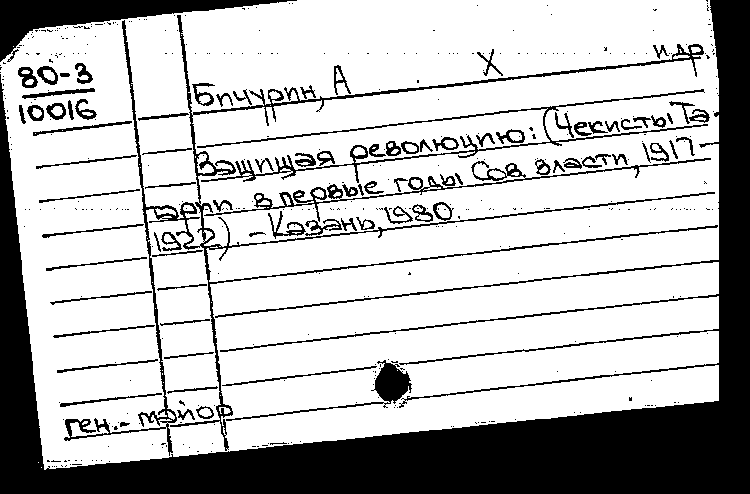 80-3
10016
Бичурин, А Х и др.
Защищая революцию: (Чекисты Та-
тарии в первые годы Сов. власти, 1917-
1922). - Казань, 1980.
ген.- майор